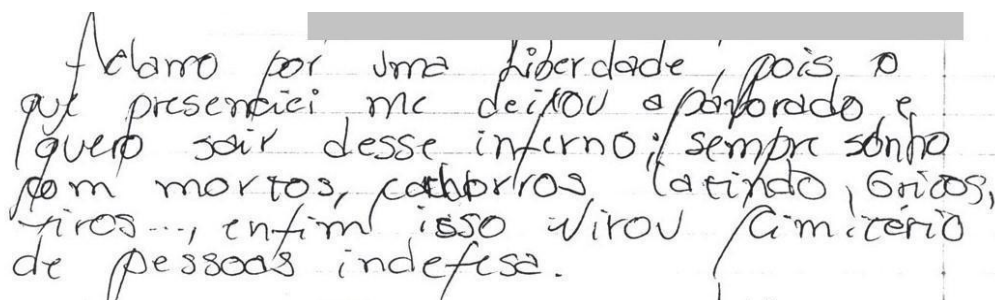 Aclamo por uma liberdade, pois o
que presenciei me deixou apavorado e
quero sair desse inferno; sempre sonho
com mortos, cachorros latindo, Gritos,
tiros..., enfim isso virou Cimitério
de pessoas indefesa.